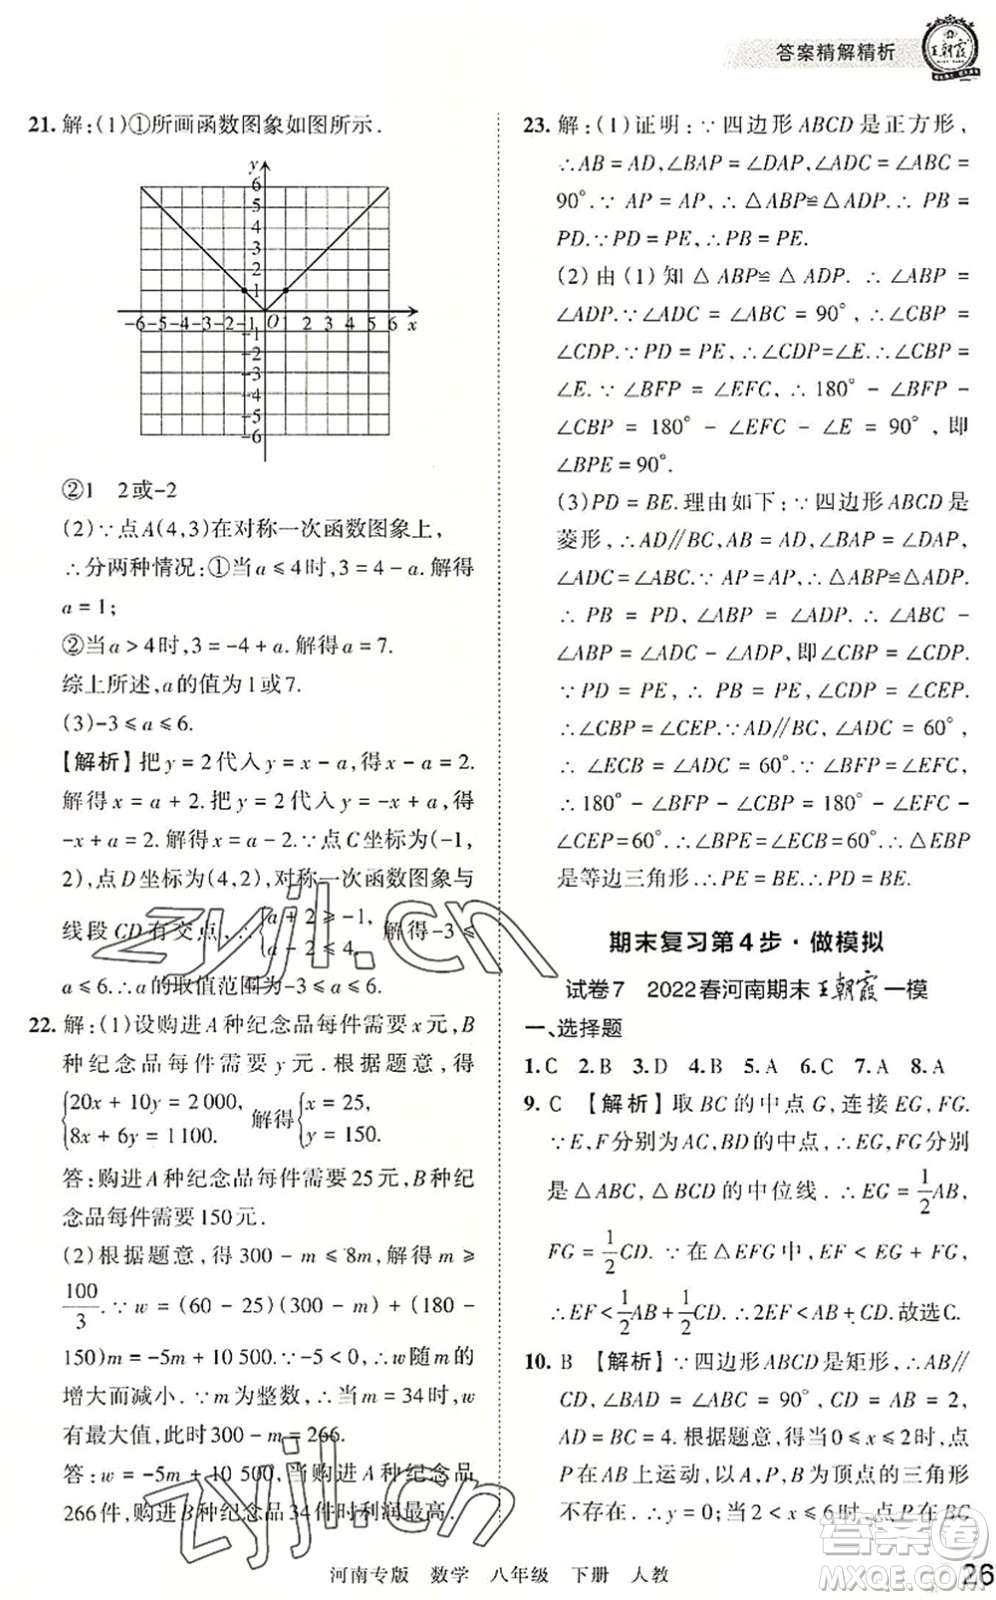 答案精解精析
王朝霞
21. 解:(1)①所画函数图象如图所示.
y
6
5
4
3
2
1
-6-5-4-3-2-1 O 1 2 3 4 5 6 x
-1
-2
-3
-4
-5
-6
②1　2或-2
(2)∵点A(4,3)在对称一次函数图象上,
∴分两种情况:①当a≤4时,3=4-a.解得
a=1;
②当a>4时,3=-4+a.解得a=7.
综上所述,a的值为1或7.
(3)-3≤a≤6.
【解析】把y=2代入y=x-a,得x-a=2.
解得x=a+2.把y=2代入y=-x+a,得
-x+a=2.解得x=a-2.∵点C坐标为(-1,
2),点D坐标为(4,2),对称一次函数图象与
线段CD有交点,∴{a+2≥-1, a-2≤4. 解得-3≤
a≤6.∴a的取值范围为-3≤a≤6.
22. 解:(1)设购进A种纪念品每件需要x元,B
种纪念品每件需要y元.根据题意,得
{20x+10y=2 000, 8x+6y=1 100. 解得{x=25, y=150.
答:购进A种纪念品每件需要25元,B种纪
念品每件需要150元.
(2)根据题意,得300-m≤8m,解得m≥
100/3.∵w=(60-25)(300-m)+(180-
150)m=-5m+10 500.∵-5<0,∴w随m的
增大而减小.∵m为整数,∴当m=34时,w
有最大值,此时300-m=266.
答:w=-5m+10 500,当购进A种纪念品
266件,购进B种纪念品34件时利润最高.
23. 解:(1)证明:∵四边形ABCD是正方形,
∴AB=AD,∠BAP=∠DAP,∠ADC=∠ABC=
90°.∵AP=AP,∴△ABP≌△ADP.∴PB=
PD.∵PD=PE,∴PB=PE.
(2)由(1)知△ABP≌△ADP.∴∠ABP=
∠ADP.∵∠ADC=∠ABC=90°,∴∠CBP=
∠CDP.∵PD=PE,∴∠CDP=∠E.∴∠CBP=
∠E.∵∠BFP=∠EFC,∴180°-∠BFP-
∠CBP=180°-∠EFC-∠E=90°,即
∠BPE=90°.
(3)PD=BE.理由如下:∵四边形ABCD是
菱形,∴AD∥BC,AB=AD,∠BAP=∠DAP,
∠ADC=∠ABC.∵AP=AP,∴△ABP≌△ADP.
∴PB=PD,∠ABP=∠ADP,∴∠ABC-
∠ABP=∠ADC-∠ADP,即∠CBP=∠CDP.
∵PD=PE,∴PB=PE,∠CDP=∠CEP.
∴∠CBP=∠CEP.∵AD∥BC,∠ADC=60°,
∴∠ECB=∠ADC=60°.∵∠BFP=∠EFC,
∴180°-∠BFP-∠CBP=180°-∠EFC-
∠CEP=60°,∴∠BPE=∠ECB=60°.∴△EBP
是等边三角形,∴PE=BE.∴PD=BE.
期末复习第4步·做模拟
试卷7　2022春河南期末王朝霞一模
一、选择题
1.C 2.B 3.D 4.B 5.A 6.C 7.A 8.A
9. C 【解析】取BC的中点G,连接EG,FG.
∵E,F分别为AC,BD的中点,∴EG,FG分别
是△ABC,△BCD的中位线.∴EG=1/2AB,
FG=1/2CD.∵在△EFG中,EF<EG+FG,
∴EF<1/2AB+1/2CD.∴2EF<AB+CD.故选C.
10. B 【解析】∵四边形ABCD是矩形,∴AB∥
CD,∠BAD=∠ABC=90°,CD=AB=2,
AD=BC=4.根据题意,得当0≤x≤2时,点
P在AB上运动,以A,P,B为顶点的三角形
不存在.∴y=0;当2<x≤6时,点P在BC
河南专版　数学　八年级　下册　人教
26
zyjl.cn
zyjl.cn
答案圈